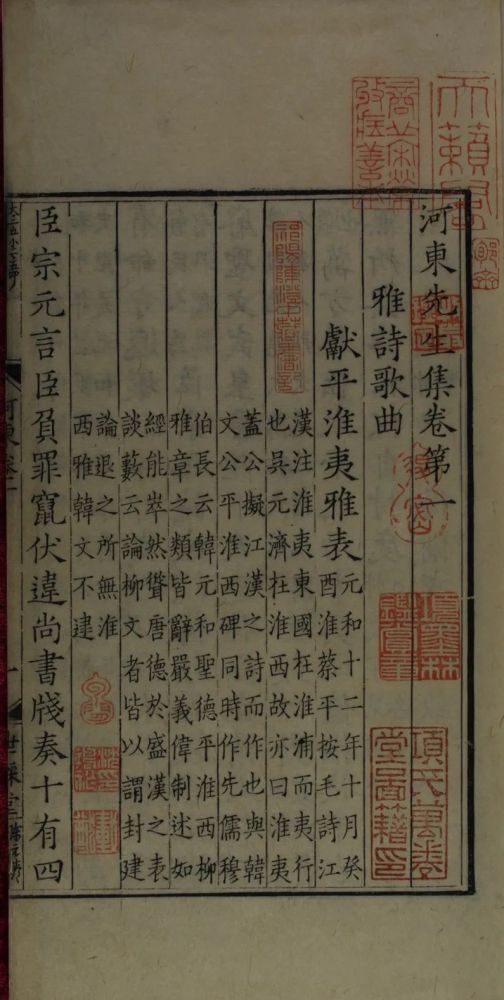 河東先生集卷第一
雅詩歌曲
獻平淮夷雅表
元和十二年十月癸
酉淮蔡平按毛詩江
漢注淮夷東國在淮浦而夷行
也吳元濟在淮西故亦曰淮夷
蓋公擬江漢之詩而作也與韓
文公平淮西碑同時作先儒穆
伯長云韓元和聖德平淮西柳
雅章之類皆辭嚴義偉制述如
經能崒然聳唐德於盛漢之表
談藪云論柳文者皆以謂封建
論退之所無淮
西雅韓文不逮
臣宗元言臣負罪竄伏違尚書牋奏十有四
天籟閣
項墨林
鑑賞章
項氏萬卷
堂圖籍印